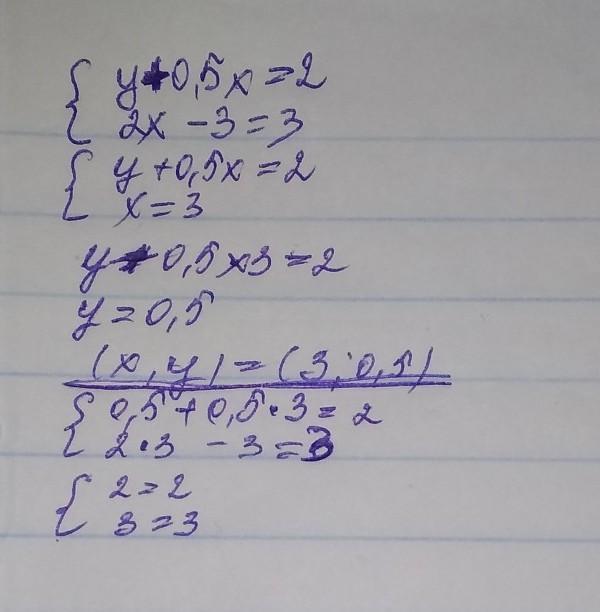 y+0,5x=2
2x-3=3
y+0,5x=2
x=3
y+0,5×3=2
y=0,5
(x,y)=(3;0,5)
0,5+0,5·3=2
2·3-3=3
2=2
3=3